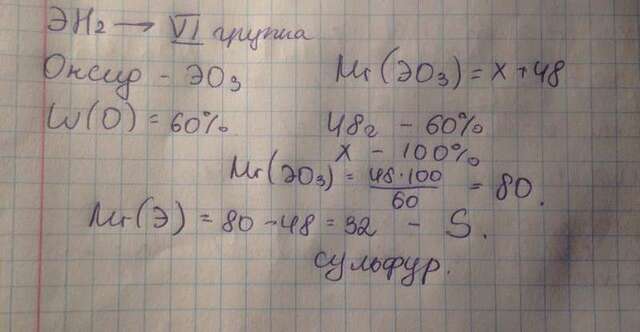 ЭН₂ → VI группа
Оксид - ЭО₃ Mr(ЭО₃) = x + 48
W(O) = 60% 48г - 60%
x - 100%
Mr(ЭО₃) = 48·100/60 = 80.
Mr(Э) = 80 - 48 = 32 - S.
сульфур.